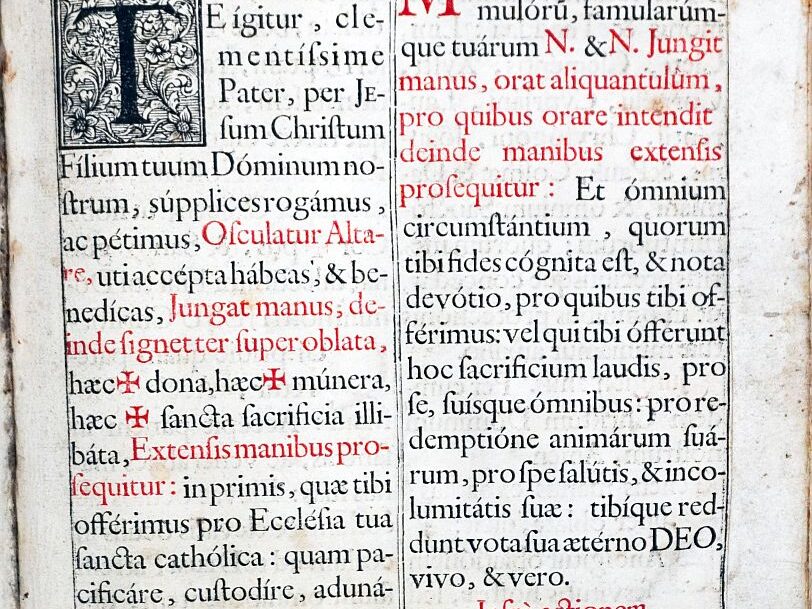 TE ígitur, cle-
mentíſſime
Pater, per JE-
ſum Chriſtum
Fílium tuum Dóminum no-
ſtrum, súpplices rogámus,
ac pétimus, Oſculatur Alta-
re, uti accépta hábeas, & be-
nedícas, Jungat manus, de-
inde ſignet ter ſuper oblata,
hæc ✠ dona, hæc ✠ múnera,
hæc ✠ ſancta ſacrificia illi-
báta, Extenſis manibus pro-
ſequitur: in primis, quæ tibi
offérimus pro Eccléſia tua
ſancta cathólica: quam pa-
cificáre, cuſtodíre, aduná-
mulórū, famularúm-
que tuárum N. & N. Jungit
manus, orat aliquantulùm,
pro quibus orare intendit
deinde manibus extenſis
proſequitur: Et ómnium
circumſtántium, quorum
tibi fides cógnita eſt, & nota
devótio, pro quibus tibi of-
férimus: vel qui tibi ófferunt
hoc ſacrificium laudis, pro
ſe, ſuíſque ómnibus: pro re-
demptióne animárum ſuá-
rum, pro ſpe ſalútis, & inco-
lumitátis ſuæ: tibíque red-
dunt vota ſua ætérno DEO,
vivo, & vero.